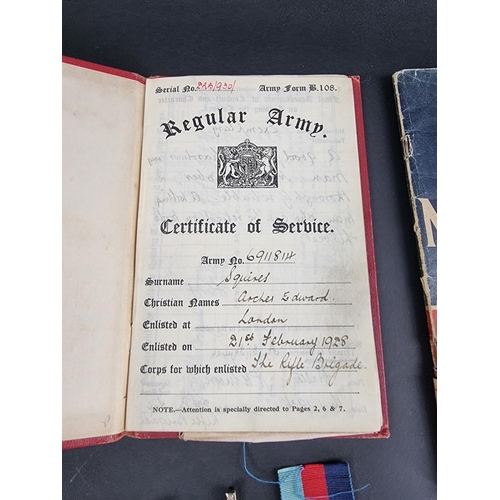 Serial No. Army Form B.108.
Regular Army.
Certificate of Service.
Army No. 6911814
Surname Squires
Christian Names Archer Edward
Enlisted at London
Enlisted on 21st February 1928
Corps for which enlisted The Rifle Brigade
NOTE.—Attention is specially directed to Pages 2, 6 & 7.